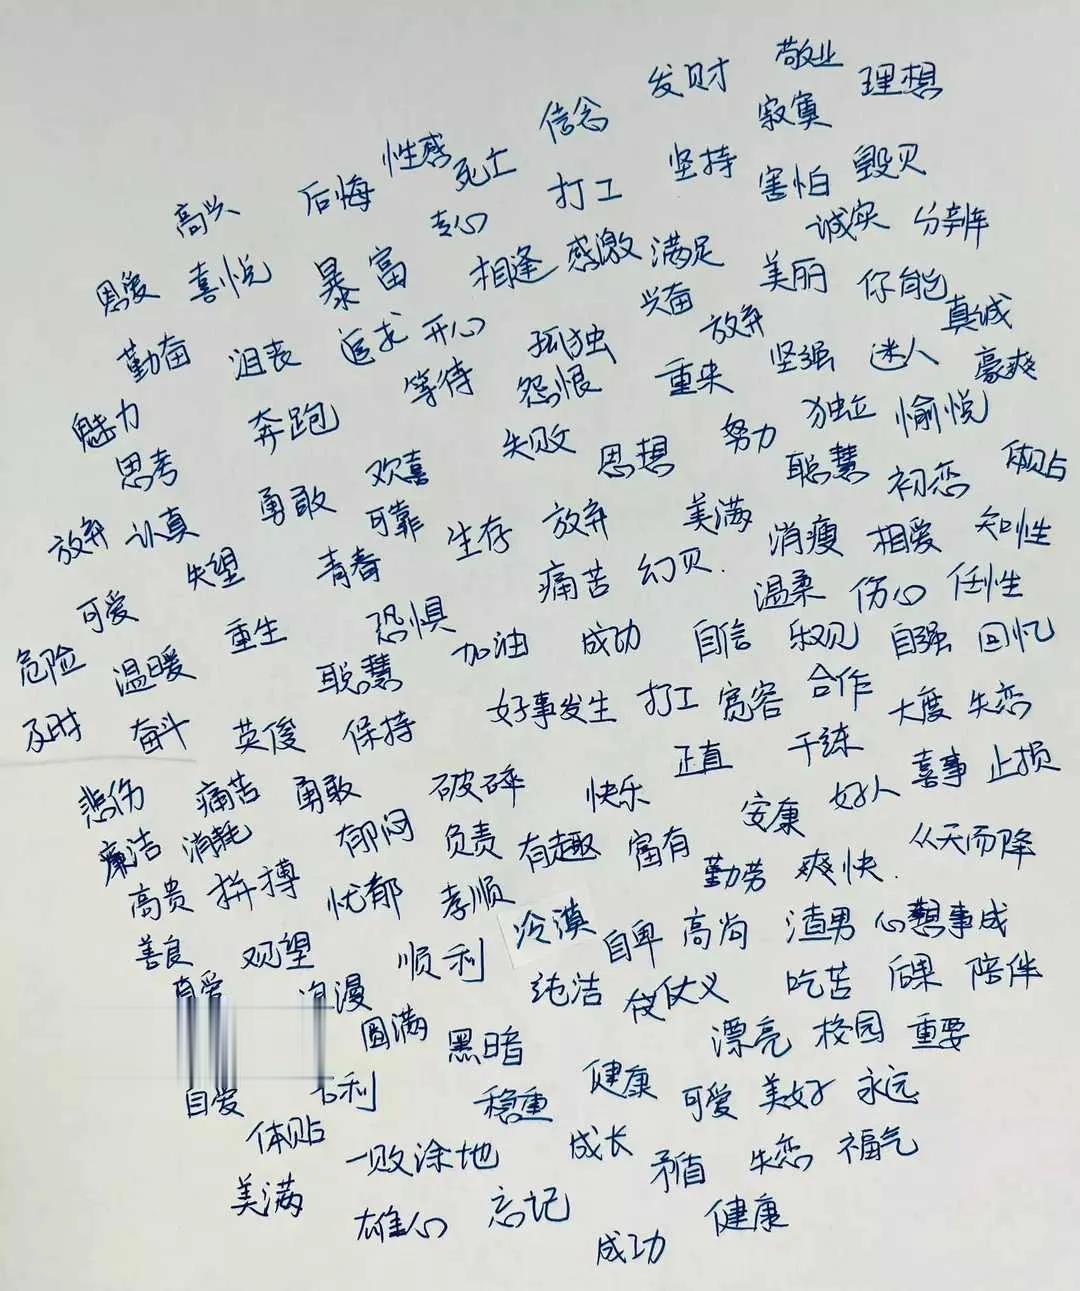 敬业
发财 理想
信念 寂寞
性感 死亡 坚持 毁灭
高兴 后悔 打工 害怕
专心 诚实 分辨
恩爱 喜悦 暴富 相逢 感激 满足 美丽 你能
兴奋 真诚
勤奋 沮丧 追求 开心 孤独 放弃 坚强 迷人 豪爽
等待 怨恨 重来
魅力 奔跑 失败 努力 独立 愉悦
思考 欢喜 思想 聪慧 初恋 体贴
放弃 认真 勇敢 可靠 生存 放弃 美满 消瘦 相爱 知性
失望 青春 痛苦 幻灭.
可爱 重生 恐惧 温柔 伤心 任性
危险 温暖 聪慧 加油 成功 自信 乐观 自强 回忆
及时 奋斗 英俊 保持 好事发生 打工 宽容 合作 大度 失恋
正直 干练
悲伤 痛苦 勇敢 破碎 快乐 安康 好人 喜事 止损
廉洁 消耗 郁闷 负责 有趣 富有 勤劳 爽快. 从天而降
高贵 拼搏 忧郁 孝顺
善良 观望 顺利 冷漠 自卑 高尚 渣男 心想事成
纯洁 仗义 吃苦 后果 陪伴
圆满 黑暗 漂亮 校园 重要
自爱 稳重 健康 可爱 美好 永远
体贴 一败涂地 成长 矛盾 失恋 福气
美满 雄心 忘记 健康
成功